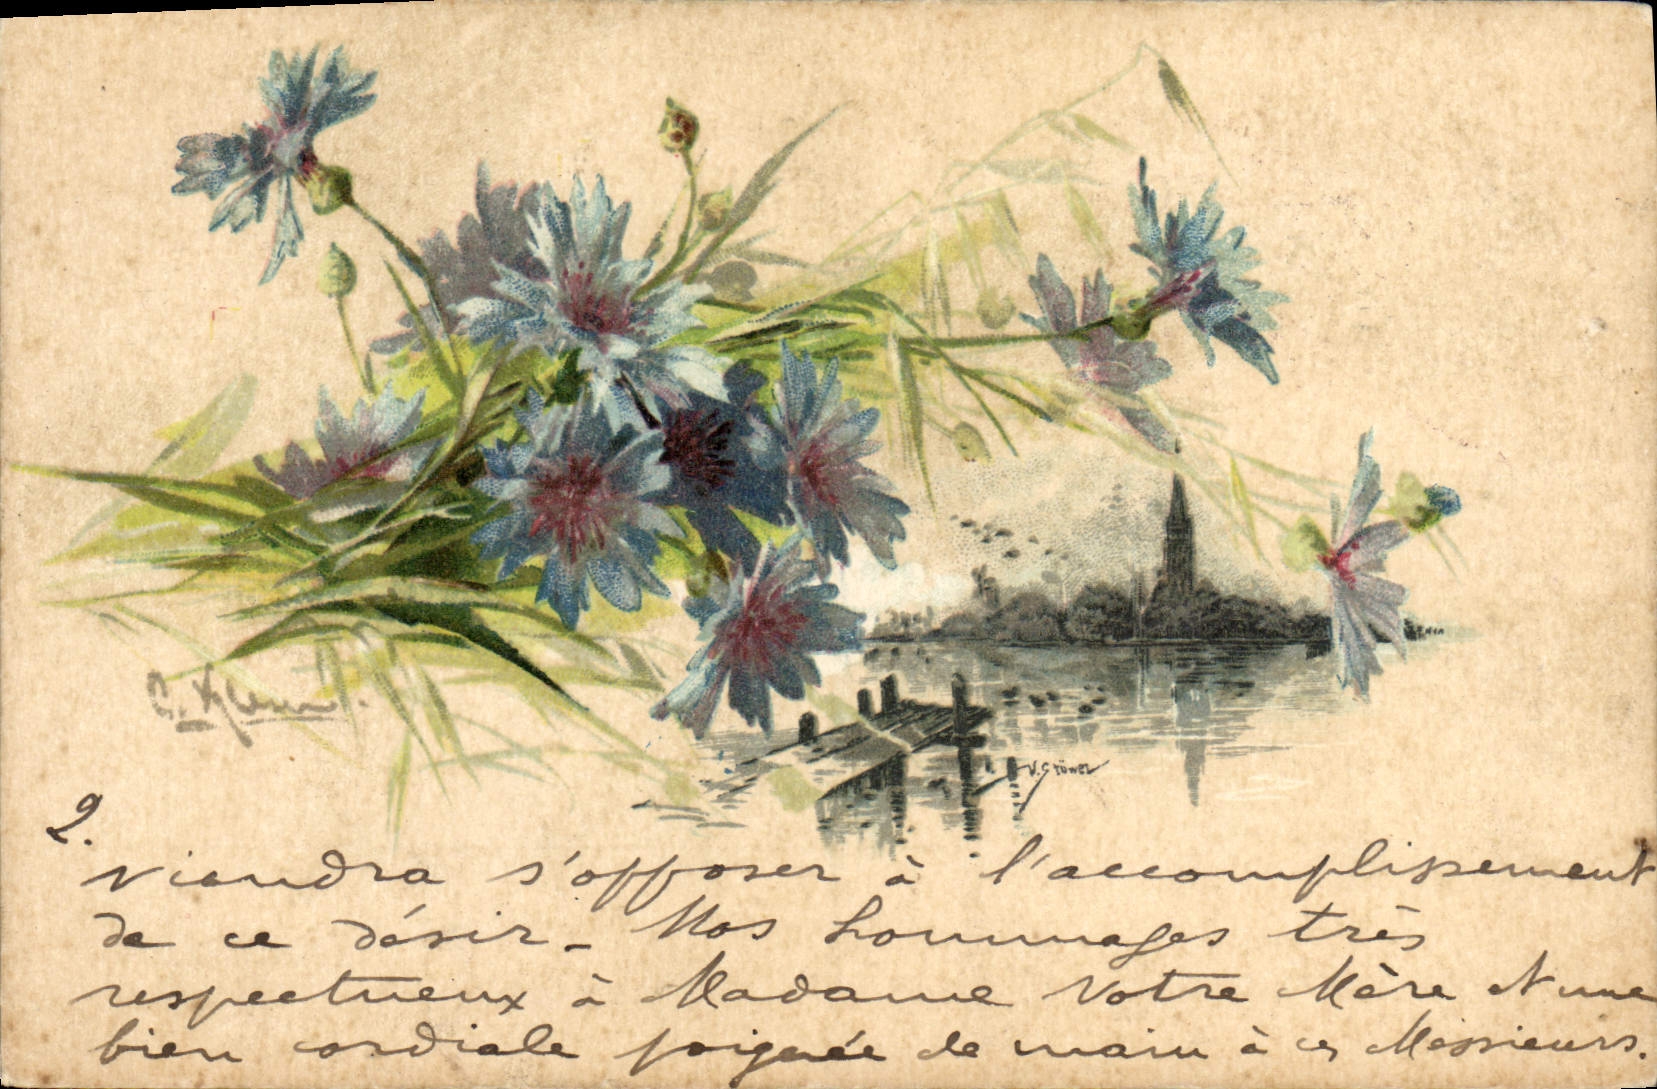 C. Klein.
V. Stöwer
2.
viendra s'opposer à l'accomplissement
de ce désir - Mes hommages très
respectueux à Madame Votre Mère et une
bien cordiale poignée de main à ces Messieurs.